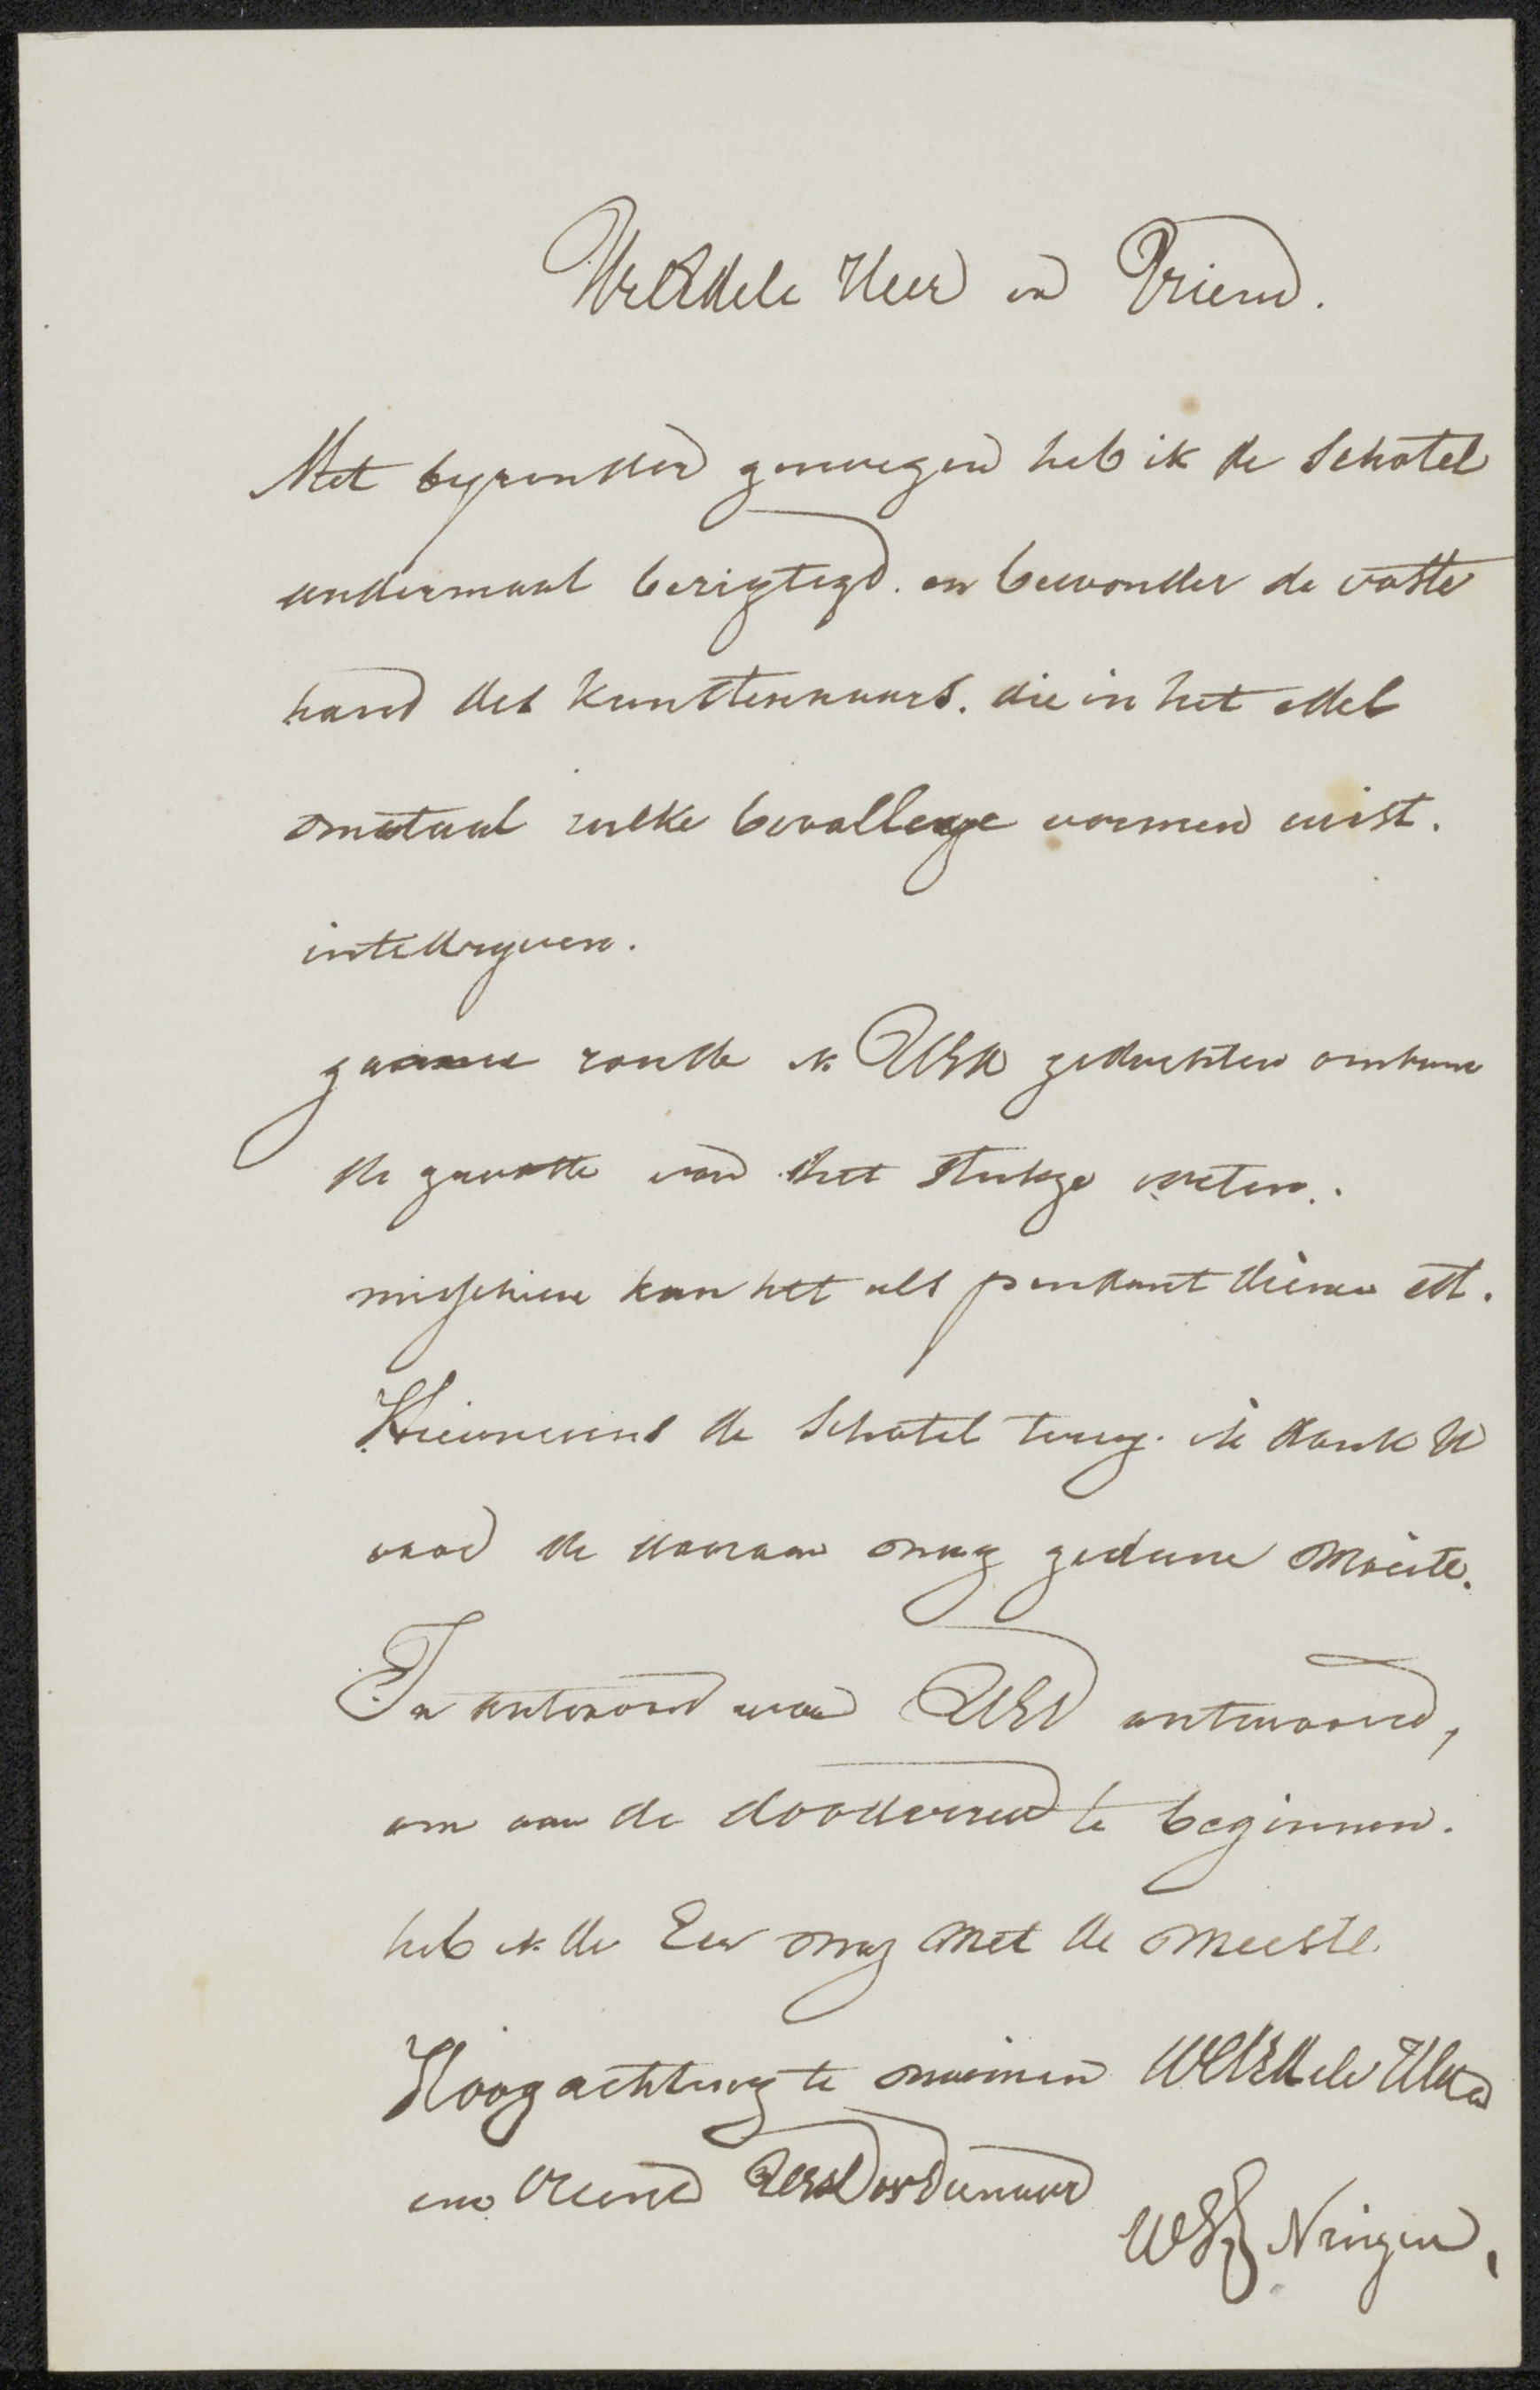 WelEdele Heer en Vriend.
Met byzonder genoegen heb ik de Schotel
andermaal berigtegd. en bewonder de vaste
hand des Kunstenaaars. die in het edel
metaal zulke bevallege vormen wist.
intedryven.
gaarne zoude ik UEd gedachten omtrent
de gewatte van het stukje weten.
misschien kan het als pendant dienen ect.
Hiernevens de Schotel terug. ik dank U
voor de daaraan nog gedane moeite.
In antwoord van UEd antwoord,
om aan de doodverven te beginnen.
heb ik de Eer my met de meeste.
Hoogachting te noemen WelEdele
en Vriend Dienaar